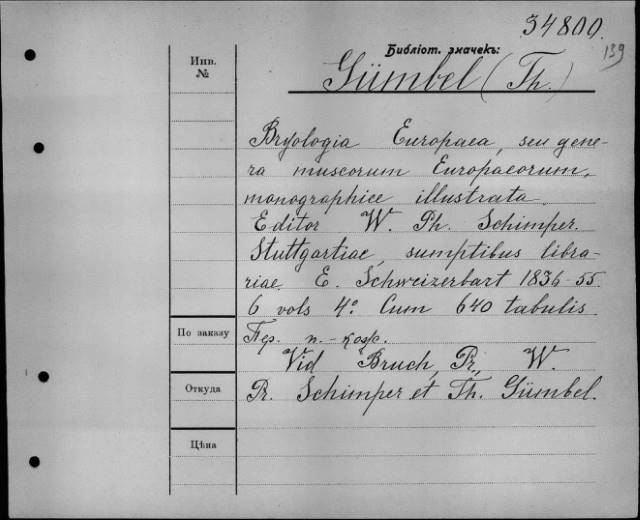 34800.
139
Библіот. значекъ:
Инв.
№
Gümbel (Th.)
Bryologia Europaea, seu gene-
ra muscorum Europaeorum,
monographice illustrata.
Editor W. Ph. Schimper.
Stuttgartiae, sumptibus libra-
riae E. Schweizerbart 1836-55.
6 vols 4º Cum 640 tabulis.
По заказу
Пер. п.-кор.
Vid Bruch, Pr., W.
Откуда
Pr. Schimper et Th. Gümbel.
Цѣна